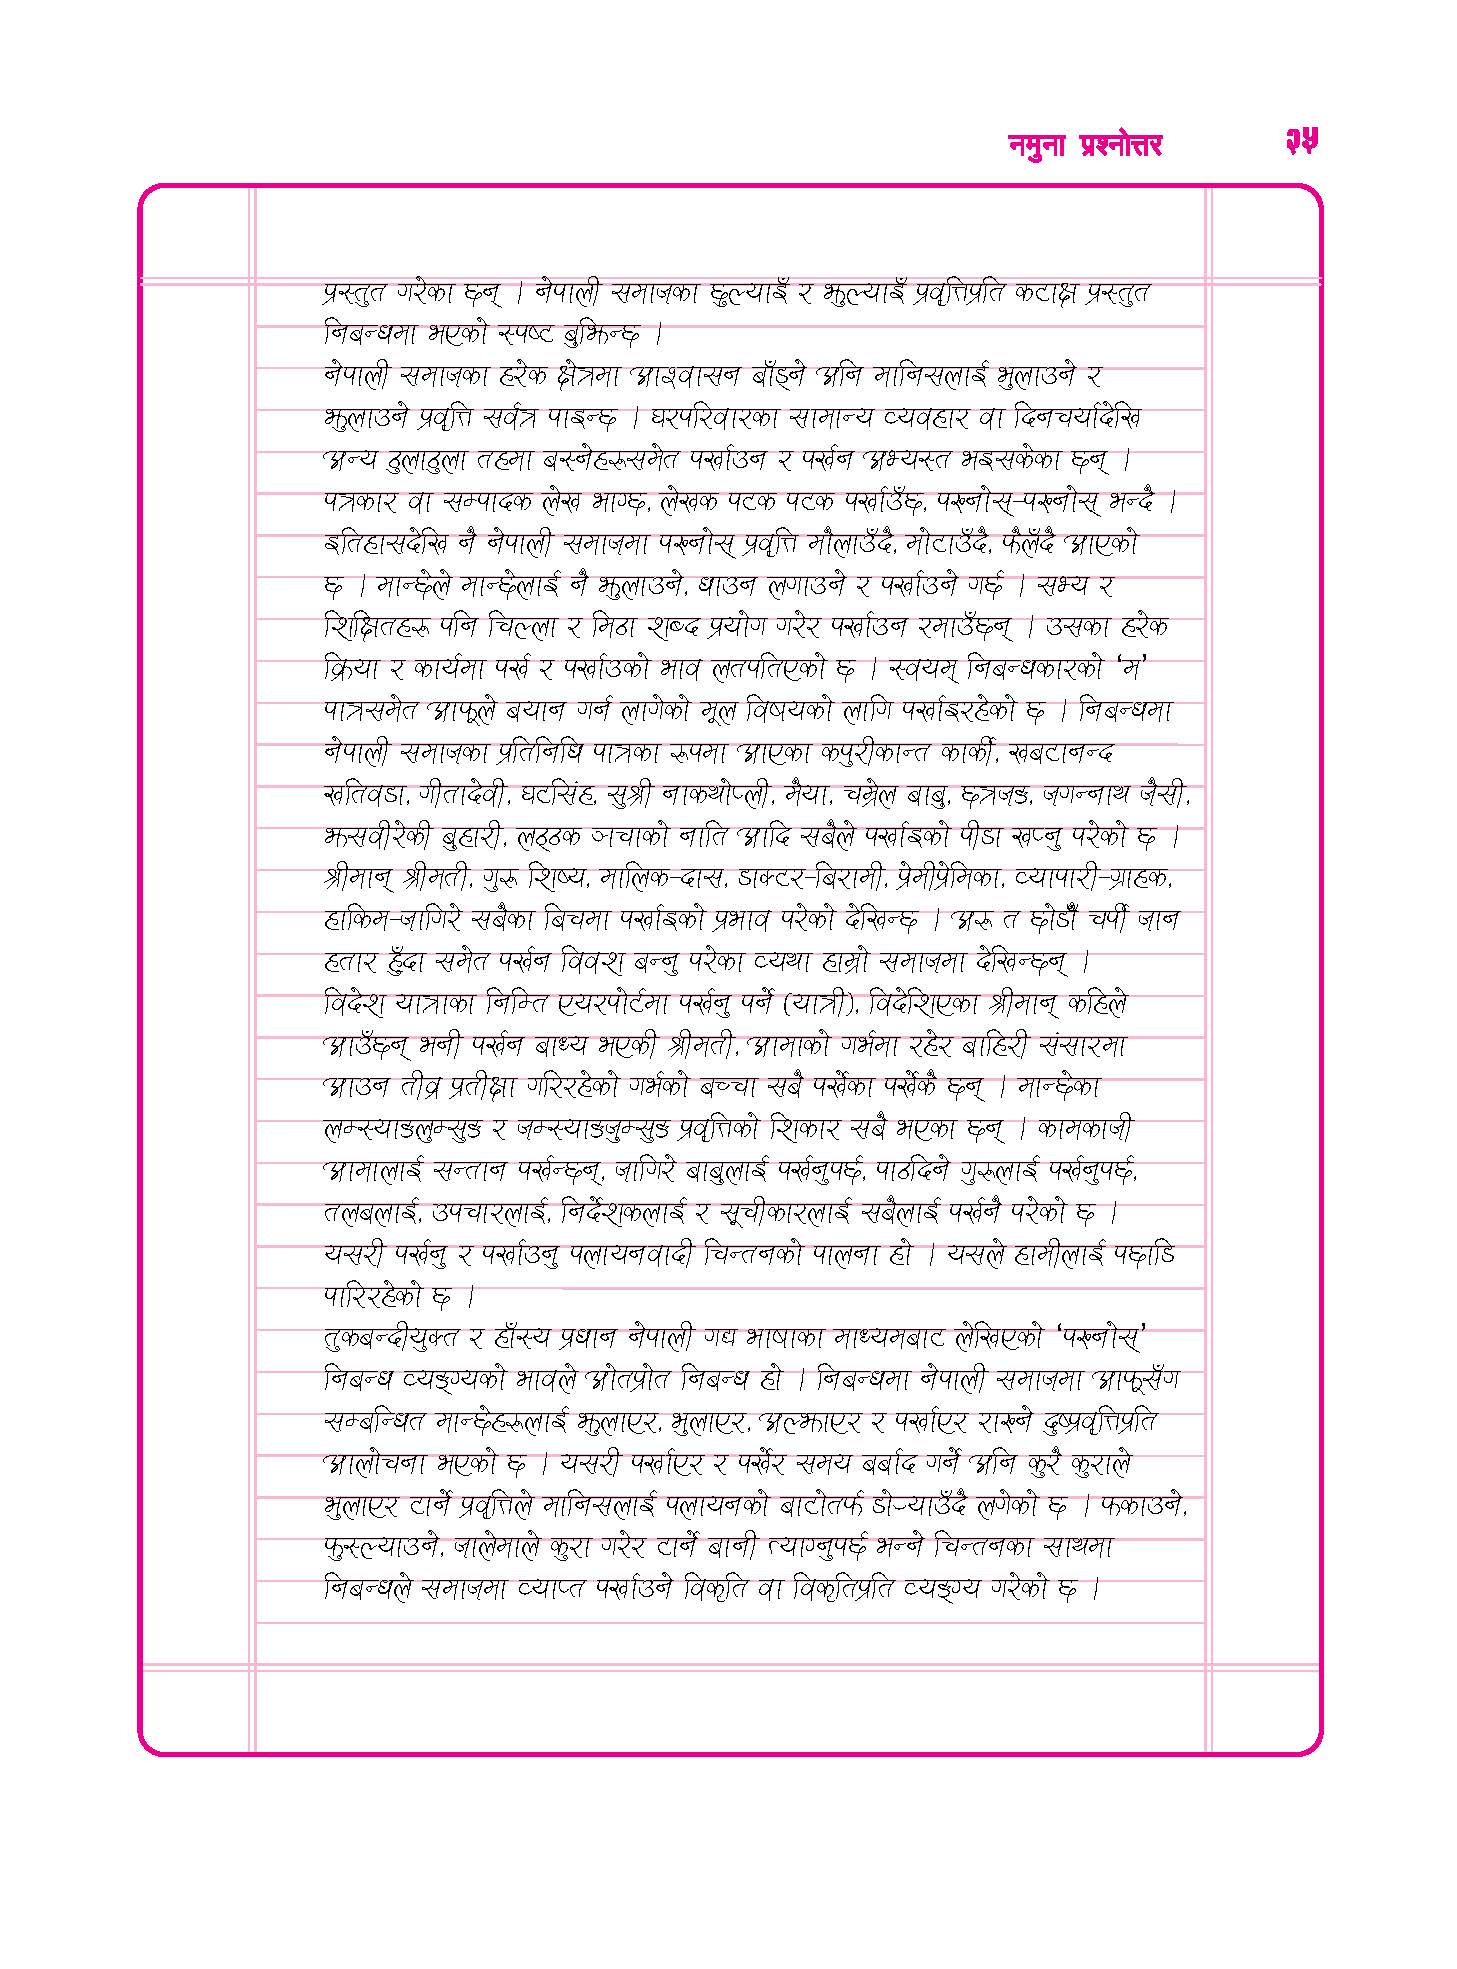 नमुना प्रश्नोत्तर ३५
प्रस्तुत गरेका छन् । नेपाली समाजका छुल्याइँ र झुल्याइँ प्रवृत्तिप्रति कटाक्ष प्रस्तुत
निबन्धमा भएको स्पष्ट बुझिन्छ ।
नेपाली समाजका हरेक क्षेत्रमा आश्वासन बाँड्ने अनि मानिसलाई भुलाउने र
झुलाउने प्रवृत्ति सर्वत्र पाइन्छ । घरपरिवारका सामान्य व्यवहार वा दिनचर्यादेखि
अन्य ठुलाठुला तहमा बस्नेहरूसमेत पर्खाउन र पर्खन अभ्यस्त भइसकेका छन् ।
पत्रकार वा सम्पादक लेख माग्छ, लेखक पटक पटक पर्खाउँछ, पख्नोस्-पख्नोस् भन्दै ।
इतिहासदेखि नै नेपाली समाजमा पख्नोस् प्रवृत्ति मौलाउँदै, मोटाउँदै, फैलँदै आएको
छ । मान्छेले मान्छेलाई नै झुलाउने, धाउन लगाउने र पर्खाउने गर्छ । सभ्य र
शिक्षितहरू पनि चिल्ला र मिठा शब्द प्रयोग गरेर पर्खाउन रमाउँछन् । उसका हरेक
क्रिया र कार्यमा पर्ख र पर्खाउको भाव लतपतिएको छ । स्वयम् निबन्धकारको ‘म’
पात्रसमेत आफूले बयान गर्न लागेको मूल विषयको लागि पर्खाइरहेको छ । निबन्धमा
नेपाली समाजका प्रतिनिधि पात्रका रूपमा आएका कपुरीकान्त कार्की, खबटानन्द
खतिवडा, गीतादेवी, घटसिंह, सुश्री नाकथोप्ली, मैया, चम्रेल बाबु, छत्रजङ, जगन्नाथ जैसी,
झसवीरेकी बुहारी, लठ्ठक ञचाको नाति आदि सबैले पर्खाइको पीडा खप्नु परेको छ ।
श्रीमान् श्रीमती, गुरू शिष्य, मालिक-दास, डाक्टर-बिरामी, प्रेमीप्रेमिका, व्यापारी-ग्राहक,
हाकिम-जागिरे सबैका बिचमा पर्खाइको प्रभाव परेको देखिन्छ । अरू त छोडौँ चर्पी जान
हतार हुँदा समेत पर्खन विवश बन्नु परेका व्यथा हाम्रो समाजमा देखिन्छन् ।
विदेश यात्राका निम्ति एयरपोर्टमा पर्खनु पर्ने (यात्री), विदेशिएका श्रीमान् कहिले
आउँछन् भनी पर्खन बाध्य भएकी श्रीमती, आमाको गर्भमा रहेर बाहिरी संसारमा
आउन तीव्र प्रतीक्षा गरिरहेको गर्भको बच्चा सबै पर्खेका पर्खेकै छन् । मान्छेका
लम्स्याङलुम्सुङ र जम्स्याङजुम्सुङ प्रवृत्तिको शिकार सबै भएका छन् । कामकाजी
आमालाई सन्तान पर्खन्छन्, जागिरे बाबुलाई पर्खनुपर्छ, पाठदिने गुरूलाई पर्खनुपर्छ,
तलबलाई, उपचारलाई, निर्देशकलाई र सूचीकारलाई सबैलाई पर्खनै परेको छ ।
यसरी पर्खनु र पर्खाउनु पलायनवादी चिन्तनको पालना हो । यसले हामीलाई पछाडि
पारिरहेको छ ।
तुकबन्दीयुक्त र हाँस्य प्रधान नेपाली गद्य भाषाका माध्यमबाट लेखिएको ‘पख्नोस्’
निबन्ध व्यङ्ग्यको भावले ओतप्रोत निबन्ध हो । निबन्धमा नेपाली समाजमा आफूसँग
सम्बन्धित मान्छेहरूलाई झुलाएर, भुलाएर, अल्झाएर र पर्खाएर राख्ने दुष्प्रवृत्तिप्रति
आलोचना भएको छ । यसरी पर्खाएर र पर्खेर समय बर्बाद गर्ने अनि कुरै कुराले
भुलाएर टार्ने प्रवृत्तिले मानिसलाई पलायनको बाटोतर्फ डोऱ्याउँदै लगेको छ । फकाउने,
फुस्ल्याउने, जालेमाले कुरा गरेर टार्ने बानी त्याग्नुपर्छ भन्ने चिन्तनका साथमा
निबन्धले समाजमा व्याप्त पर्खाउने विकृति वा विकृतिप्रति व्यङ्ग्य गरेको छ ।